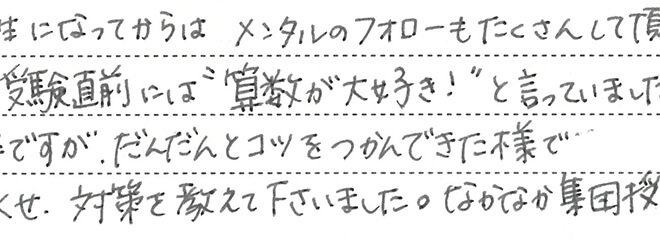 生になってからは メンタルのフォローもたくさんして頂
受験直前には“算数が大好き!”と言っていました
ですが、だんだんとコツをつかんできた様で
くせ、対策を教えて下さいました。なかなか集団授